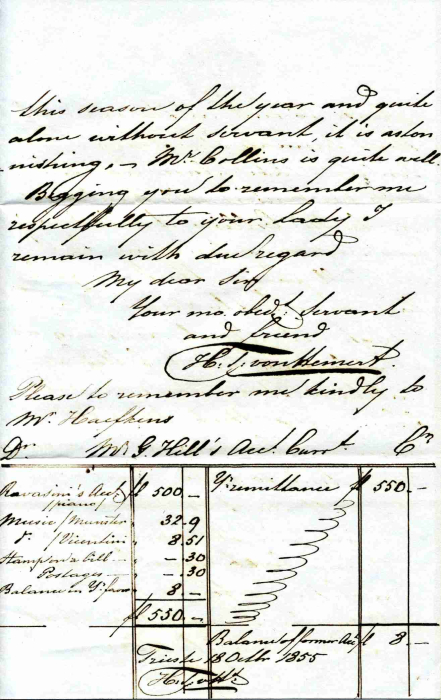 this season of the year and quite
alone without servant, it is aston
nishing. – Mr. Collins is quite well.
Begging you to remember me
respectfully to your Lady I
remain with due regard
My dear Sir
Your mo. obedt. Servant
and friend
Please to remember me kindly to
Mr. Haefkens
Dr. Mr. G. Hill's Acct. Currt. Cr.
Ravasini's Acct. fl 500 –
(piano)
Yr. remittance fl 550. –
Music / Munster " 32. 9
do. / Vicentini " 8 51
Hampson's bill – " – . 30
Postages – " – . 30
Balance in Yr. favor " 8 –
fl 550. –
Balance of former Act. fl 8. –
Trieste 18 Octbr. 1855